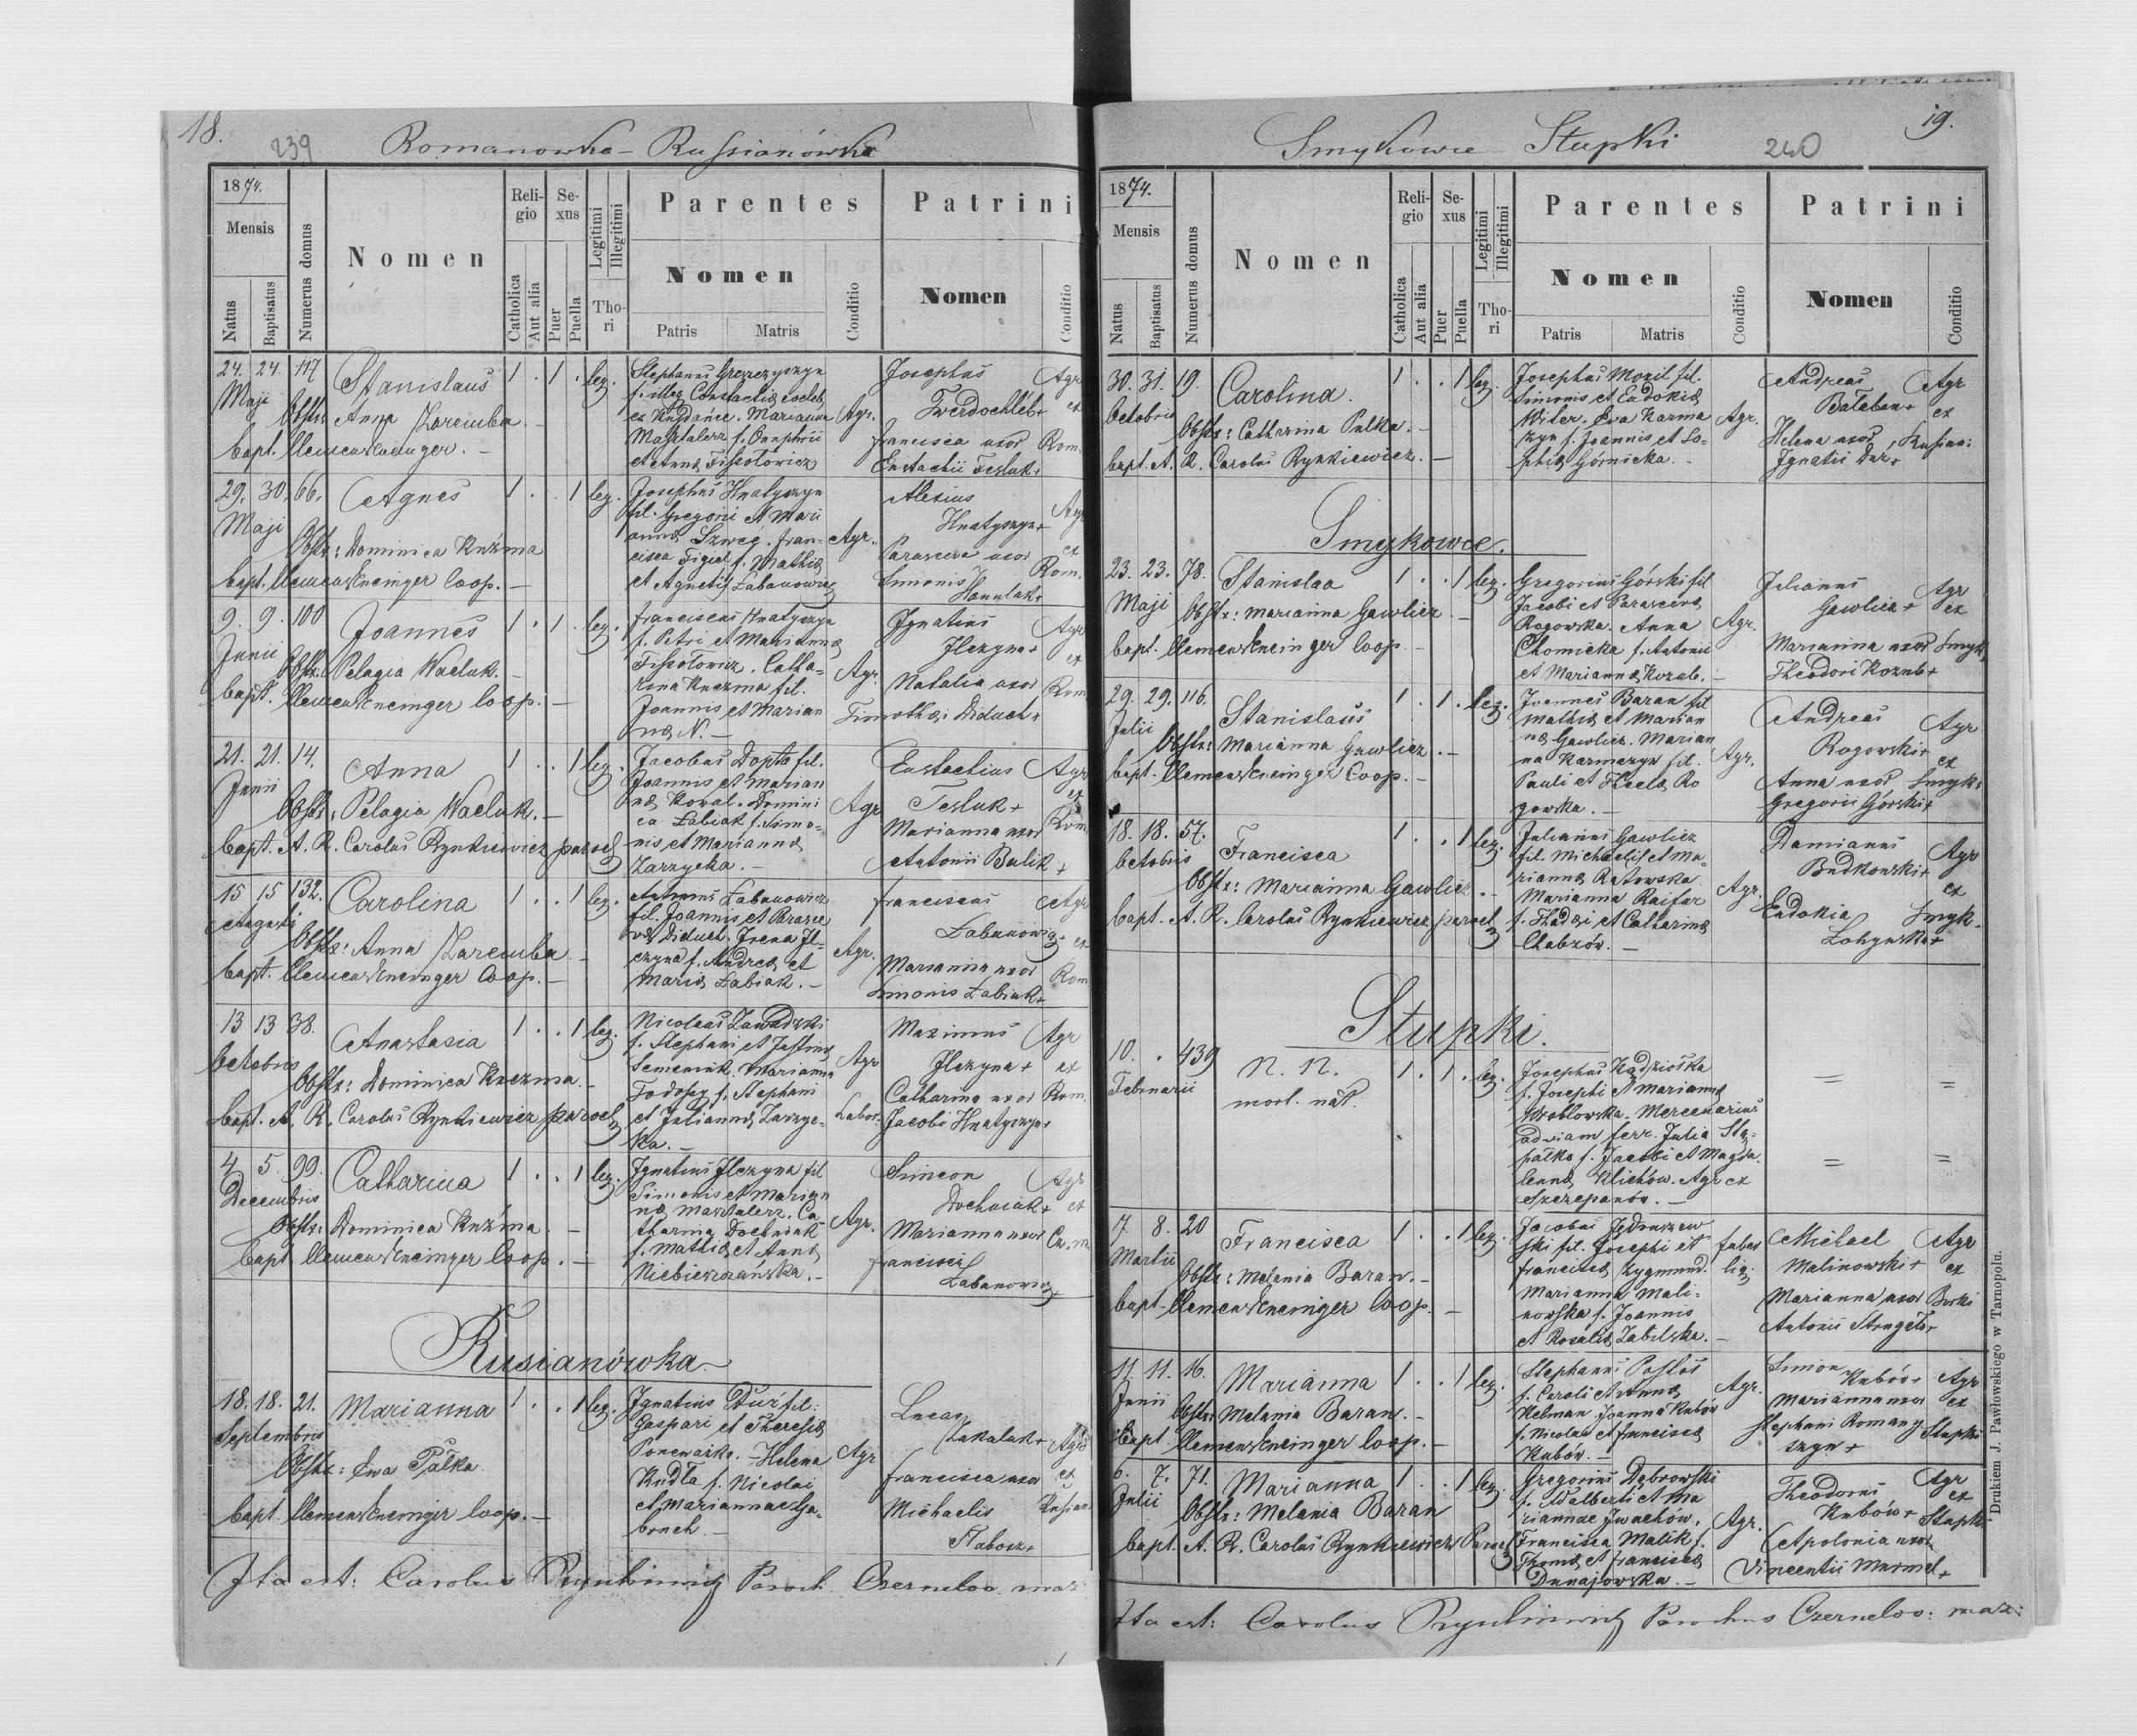 18.
239
Romanowka - Russianówka
1874.
Mensis
Natus
Baptisatus
Numerus domus
Nomen
Religio
Catholica
Aut alia
Sexus
Puer
Puella
Legitimi
Illegitimi
Thori
Parentes
Nomen
Patris
Matris
Conditio
Patrini
Nomen
Conditio
24. 24. 117 Stanislaus 1 . 1 . leg.
Maji
Obstx: Anna Zaremba. -
bapt. Clemens Kneinger. -
Stephanus
f. illeg.
Marianna
Masztalerz f. Onuphrii
et Anna
Agr.
Josephus
Twerdochleb +
Francisca uxor
Eustachii Tesluk +
Agr
ex
Rom.
29. 30. 66. Agnes 1 . . 1 leg.
Maji
Obstx: Dominica Kuźma
bapt. Clemens Kneinger Coop. -
Josephus Hnatyszyn
fil. Gregorii et Mari
anna Szweg. Fran-
cisca Figiel f. Mathia
et Agnetis Labanowicz
Agr.
Alexius
Hnatyszyn +
Parasceva uxor
Simonis
Hanulak +
Agr
ex
Rom.
9. 9. 100 Joannes 1 . 1 . leg.
Junii
Obstx: Pelagia Wacluk. -
bapt. Clemens Kneinger Coop. -
Franciscus Hnatyszyn
f. Petri et Marianna
Catha-
rina Kuczma fil.
Joannis et Marian
na N. -
Agr.
Ignatius
Ilczyna +
Natalia uxor
Timothei Diduch +
Agr
ex
Rom
21. 21. 14. Anna 1 . . 1 leg.
Junii
Obstx: Pelagia Wacluk. -
bapt. A. R. Carolus Rynkiewicz paroch
Jacobus Dopta fil.
Joannis et Marian
na Kowal. Domini
ca Łabiak f. Simo-
nis et Marianna
Zarzycka. -
Agr
Eustachius
Tesluk +
Marianna uxor
Antonii Bulik +
Agr
ex
Rom
15 15 132. Carolina 1 . . 1 leg.
Augusti
Obstx: Anna Zaremba. -
bapt. Clemens Kneinger Coop. -
Antonius Łabanowicz
fil. Joannis et Parasce
va Diduch. Irena Il-
czyna f. Andrea et
Maria Łabiak. -
Agr.
Franciscus
Łabanowicz +
Marianna uxor
Simonis Łabiak +
Agr
ex
Rom
13 13 38. Anastasia 1 . . 1 leg.
Octobris
Obstx: Dominica Kuczma. -
bapt. A. R. Carolus Rynkiewicz paroch
Nicolaus Zawadzki
f. Stephani et Justina
Semeniuk. Marianna
f. Stephani
et Julianna Zarzyc-
ka. -
Agr
Labor.
Maximus
Ilczyna +
Catharina uxor
Jacobi Hnatyszyn +
Agr
ex
Rom.
4 5. 99. Catharina 1 . . 1 leg.
Decembris
Obstx: Dominica Kuźma. -
bapt Clemens Kneinger Coop. -
Ignatius Ilczyna fil
Simonis et Marian
na Masztalerz. Ca-
tharina Dochniak
f. Mathia et Anna
Niebieszczańska. -
Agr.
Simeon
Dochniak +
Marianna uxor
Francisci
Łabanowicz
Agr
ex
Rusianówka.
18. 18. 21. Marianna 1 . . 1 leg.
Septembris
Obstx: Ewa Pałka
bapt. Clemens Kneinger Coop. -
Ignatius Duź fil.
Gaspari et Theresia
Helena
Kudła f. Nicolai
et Mariannae Ga-
bruch. -
Agr
Lucas
Zakaluk +
Francisca uxor
Michaelis
Agr
ex
Rusian
Ita est: Carolus Rynkiewicz Paroch. Czernelov. maz.
19.
240
Smykowce - Stupki
1874.
Mensis
Natus
Baptisatus
Numerus domus
Nomen
Religio
Catholica
Aut alia
Sexus
Puer
Puella
Legitimi
Illegitimi
Thori
Parentes
Nomen
Patris
Matris
Conditio
Patrini
Nomen
Conditio
30. 31. 19. Carolina. 1 . . 1 leg.
Octobris
Obstx: Catharina Pulka. -
bapt. A. R. Carolus Rynkiewicz. -
Josephus Mozil fil.
Simonis et Eudokia
Witer. Eva Karma
zyn f. Joannis et So-
phia Górnicka. -
Agr.
Andreas
Bałaban +
Helena uxor
Ignatii Duz +
Agr
ex
Rusian:
Smykowce.
23. 23. 78. Stanislaa 1 . . 1 leg.
Maji Obstx: Marianna Gawlicz -
bapt. Clemens Kneinger Coop. -
Gregorius Górski fil
Jacobi et Parasceva
Rogowska. Anna
Chomicka f. Antonii
et Marianna Kozub. -
Agr.
Julianus
Gawlicz +
Marianna uxor
Theodori Kozub +
Agr
ex
Smyk
29. 29. 116. Stanislaus 1 . 1 . leg.
Julii
Obstx: Marianna Gawlicz. -
bapt. Clemens Kneinger Coop. -
Joannes Baran fil
Mathia et Marian
na Gawlicz. Marian
na Karmazyn fil.
Pauli et Thecla Ro
gowska. -
Agr.
Andreas
Rogowski +
Anna uxor
Gregorii Górski +
Agr
ex
Smyk:
18. 18. 57. Francisca 1 . . 1 leg.
Octobris
Obstx: Marianna Gawlicz. -
bapt. A. R. Carolus Rynkiewicz paroch
Julianus Gawlicz
fil. Michaelis et Ma-
rianna Ratowska
Marianna Raifur
f. Thadei et Catharina
Chabzów. -
Agr.
Damianus
Budkowski +
Eudokia
Łohynska +
Agr
ex
Smyk.
Stupki.
10. . 439 N. N. 1 . 1 . leg.
Februarii
mort. nat.
Josephus Kądziołka
f. Josephi et Marianna
Wróblowska. Mercenarius
ad viam ferr. Julia Stą-
pałko f. Jacobi et Magda-
lenna Klichów. Agr ex
Szczepanów. -
7. 8. 20 Francisca 1 . . 1 leg.
Martii
Obstx: Melania Baran. -
bapt. Clemens Kneinger Coop. -
Jacobus Jędruszew
ski fil. Josephi et
Francisca Zygmund.
Marianna Mali-
nowska f. Joannis
et Rosalia Zabilska. -
faber
lig.
Michael
Malinowski +
Marianna uxor
Antonii
Agr
ex
Borki
11. 11. 16. Marianna 1 . . 1 leg.
Junii
Obstx: Melania Baran. -
bapt Clemens Kneinger Coop. -
Stephanus Pastas
f. Caroli et Anna
Kelman. Joanna Kubów
f. Nicolai et Francisca
Kubów. -
Agr.
Simon
Kubów +
Marianna uxor
Stephani Romany
szyn +
Agr
ex
Stupki
6. 7. 71. Marianna 1 . . 1 leg.
Julii
Obstx: Melania Baran
bapt. A. R. Carolus Rynkiewicz Paroch
Gregorius Dąbrowski
f. Adalberti et Ma
riannae Iwachów.
Francisca Malik f.
Thoma et Francisca
Dunajowska. -
Agr.
Theodorus
Kubów +
Apolonia uxor
Vincentii Murmel +
Agr
ex
Stupk
Ita est: Carolus Rynkiewicz Parochus Czernelov: maz:
Drukiem J. Pawłowskiego w Tarnopolu.